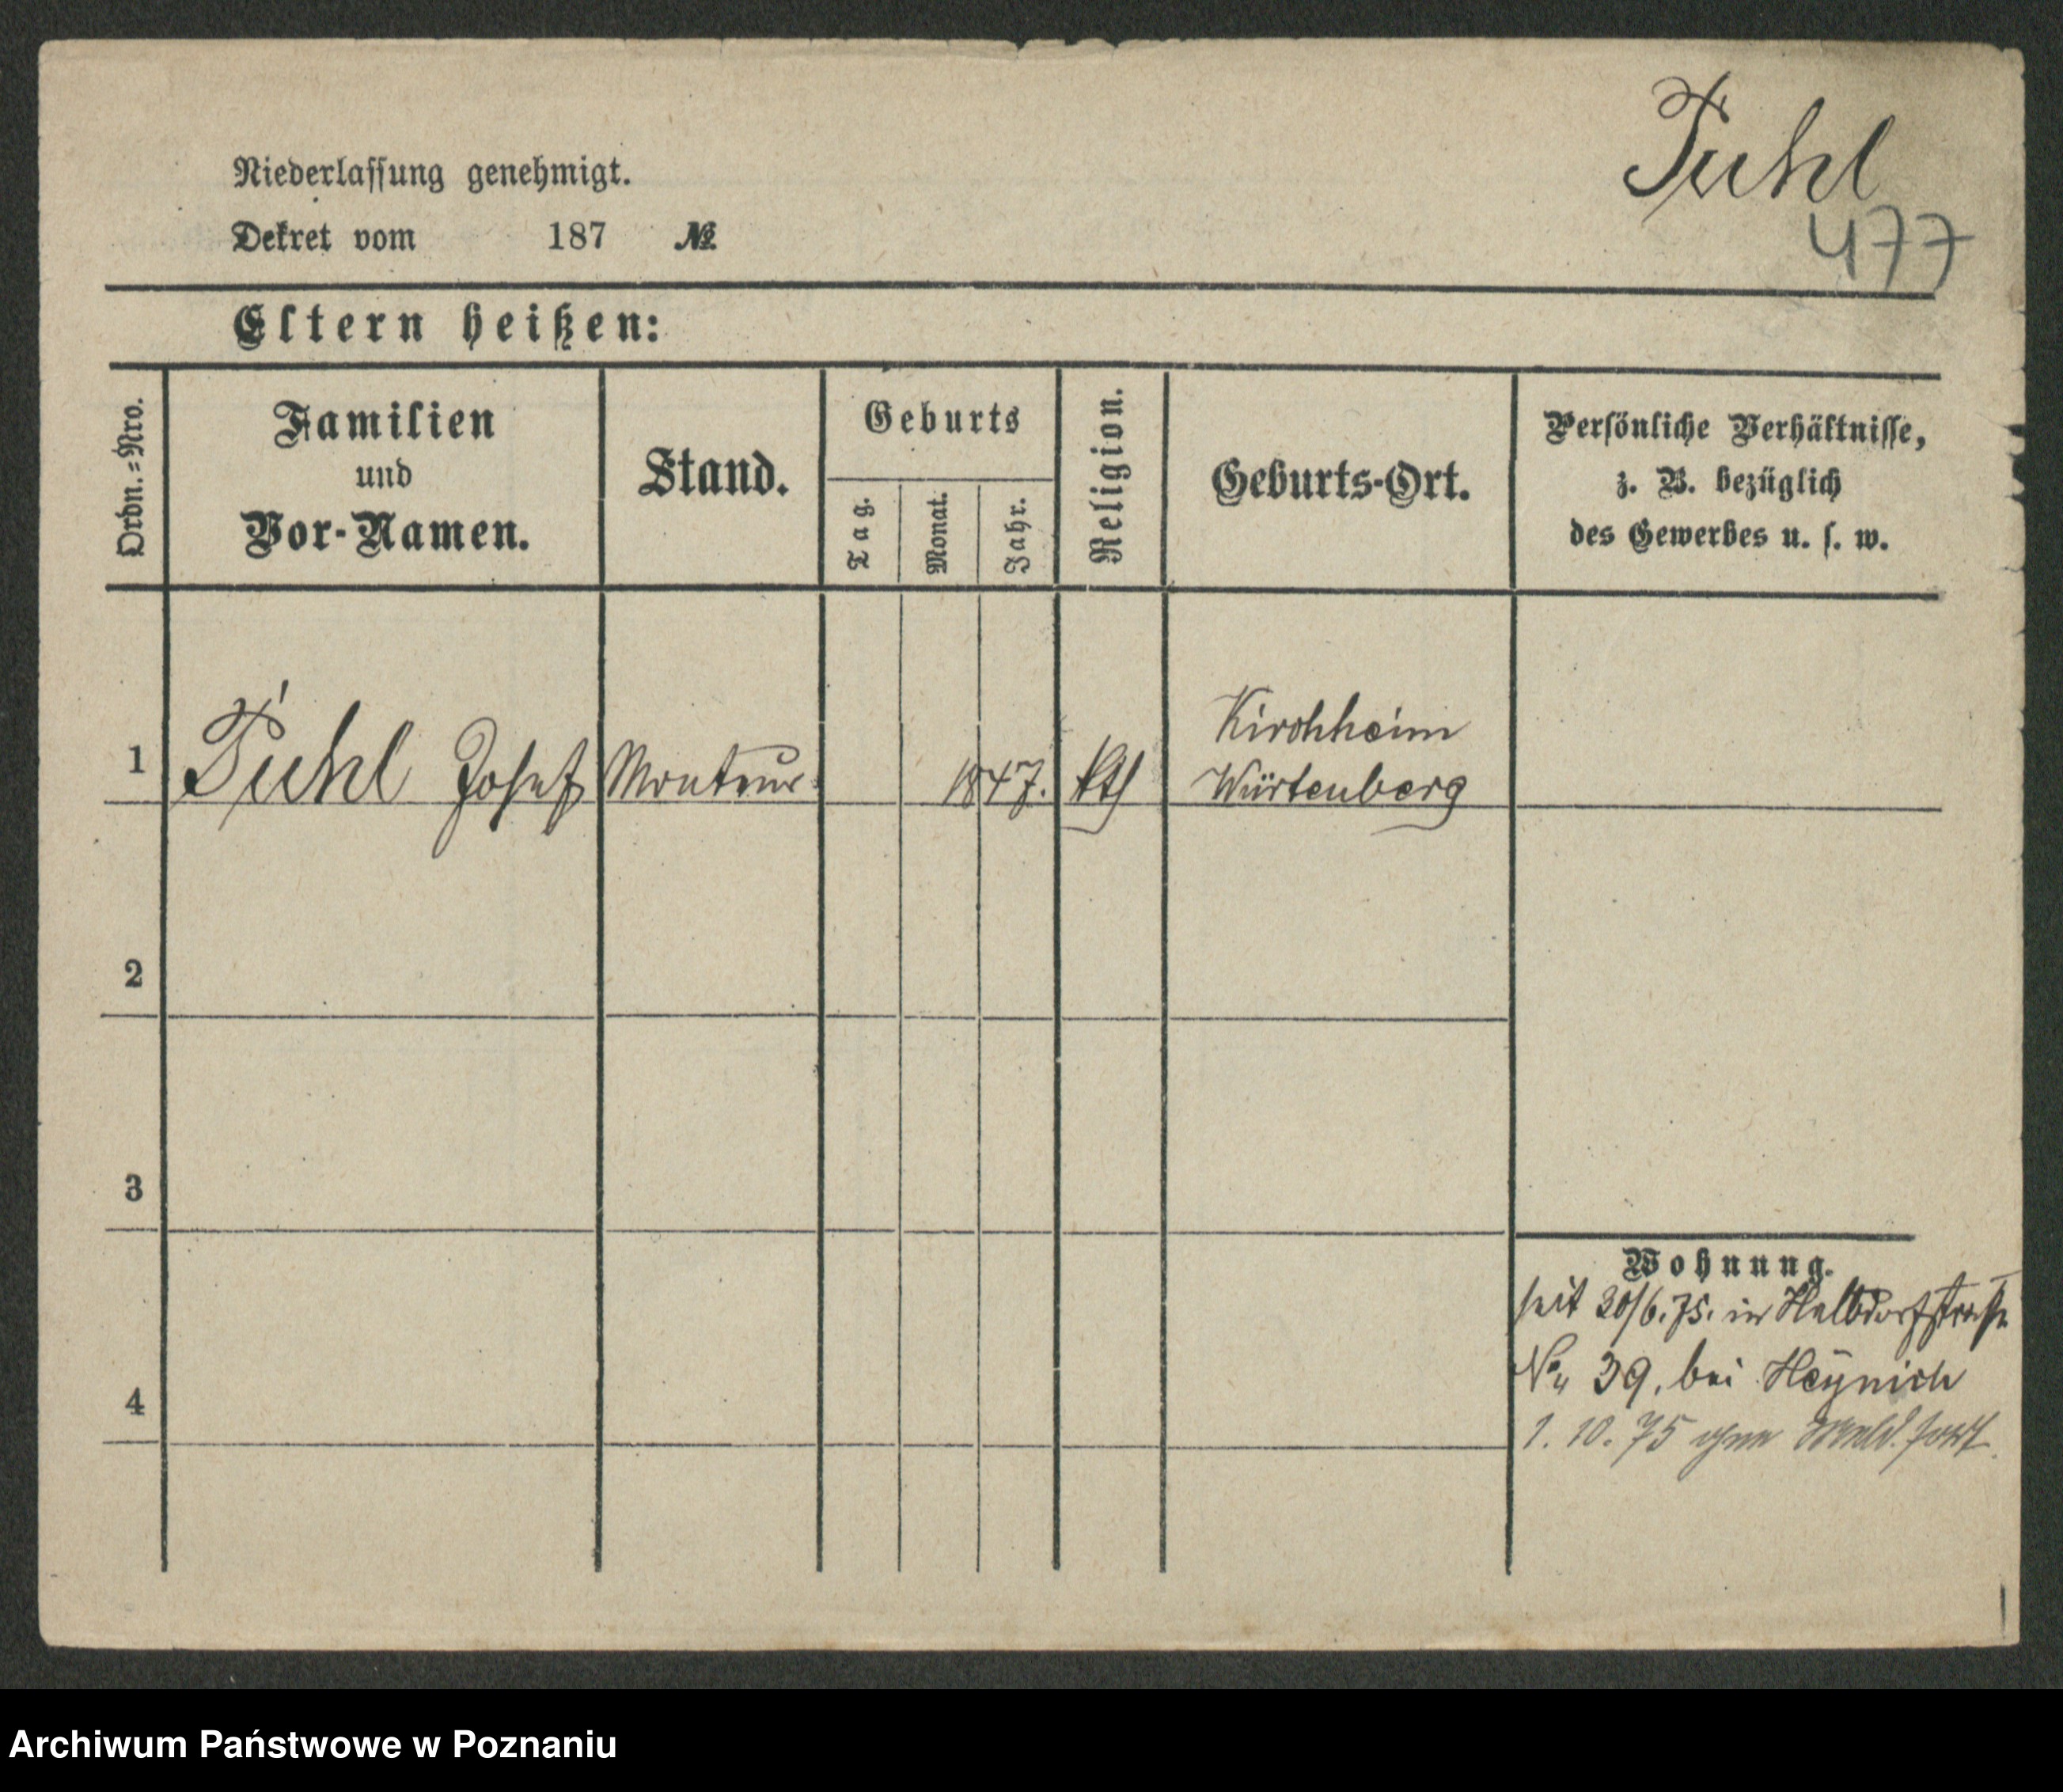 Puhl
477
Niederlassung genehmigt.
Dekret vom 187 №
Eltern heißen:
Ordn.=Nro.
Familien
und
Vor-Namen.
Stand.
Geburts
Tag.
Monat.
Jahr.
Religion.
Geburts-Ort.
Persönliche Verhältnisse,
z. B. bezüglich
des Gewerbes u. s. w.
1 Puhl Josef Monteur 1847. kth Kirchheim
Würtenberg
2
3
4
Wohnung.
seit 30/6.75. in Halbdorfstraße
No 39. bei Heÿnich
1. 10. 75 ohne Meld. fort.
Archiwum Państwowe w Poznaniu